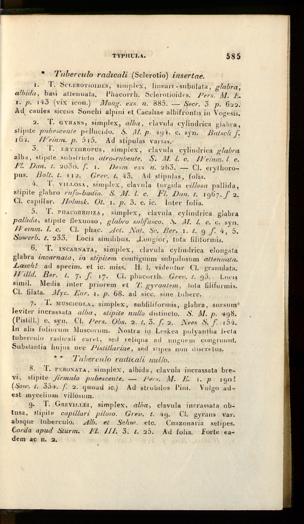 TYPHULA. 585
* Tuberculo radicali (Sclerotio) insertae.
1. T. SCLEROTIOIDES, simplex, lineari-subulata, glabra,
albida, basi attenuata. Phacorrh. Sclerotioides. Pers. M. E.
1. p. 193 (vix icon.) Moug. exs. n. 885. — Secr. 3 p. 622.
Ad caules siccos Sonchi alpini et Cacaliae albifrontis in Vogesis.
2. T. GYRANS, simplex, alba, clavula cylindrica glabra,
stipite pubescente pellucido. S. M. p. 494. c. syn. Batsch f.
162. Weinm. p. 515. Ad stipulas varias.
3. T. ERYTHROPUS, simplex, clavula cylindrica glabra
alba, stipite substricto atro-rubente. S. M. l. c. Weinm. l. c.
Fl. Dan. t. 2030. f. 1. Desm. exs n. 263. — Cl. erythropus.
Bolt. t. 112. Grev. t. 43. Ad stipulas, folia.
4. T. VILLOSA, simplex, clavula turgida villosa pallida,
stipite glabro rufo-badio. S. M. l. c. Fl. Dan. t. 1967. f. 2.
Cl. capillar. Holmsk. Ot. 1. p. 3. c. ic. Inter folia.
5. T. PHACORRHIZA, simplex, clavula cylindrica glabra
pallida, stipite flexuoso, glabro subfusco. S. M. l. c. c. syn.
Weinm. l. c. Cl. phac. Act. Nat. Sc. Ber. 1. t. 9 f. 4, 5.
Sowerb. t. 233. Locis similibus. Longior, tota filiformis.
6. T. INCARNATA, simplex, clavula cylindrica elongata
glabra incarnata, in stipitem contiguum subpilosum attenuata.
Lasch! ad specim. et ic. miss. H. l. videntur Cl. granulata
Willd. Ber. t. 7. f. 17. Cl. phacorrh. Grev. t. 93. Locis
simil. Medis inter priorem et T. gyrantem, tota filiformis.
Cl. filata. Myc. Eur. 1. p. 68. ad sicc. sine tubere.
7. T. MUSCICOLA, simplex, subfiliformis, glabra, sursum
leviter incrassata alba, stipite nullo distincto. S. M. p. 498.
(Pistill.) c. syn. Cl. Pers. Obs. 2. t. 3. f. 2. Nees S. f. 152.
In aliis foliorum Muscorum. Nostra in Leskea polyantha certa
tuberculo radicali caret, sed reliqua ad unguem congruunt.
Substantia hujus nec Pistillariae, sed stipes non discretus.
** Tuberculo radicali nullo.
8. T. PERONATA, simplex, albida, clavula incrassata brevi,
stipite firmulo pubescente. — Pers. M. E. 1. p. 191!
(Sow. t. 334. f. 2. quoad ic.) Ad strobulos Pini. Vulgo adest
mycelium villosum.
9. T. GREVILLEI, simplex, alba, clavula incrassata obtusa,
stipite capillari piloso. Grev. t. 49. Cl. gyrans var.
absque tuberculo. Alb. et Schw. etc. Crinonaria setipes.
Corda apud Sturm. Fl. III. 3. t. 25. Ad folia. Forte eadem
ac n. 2.